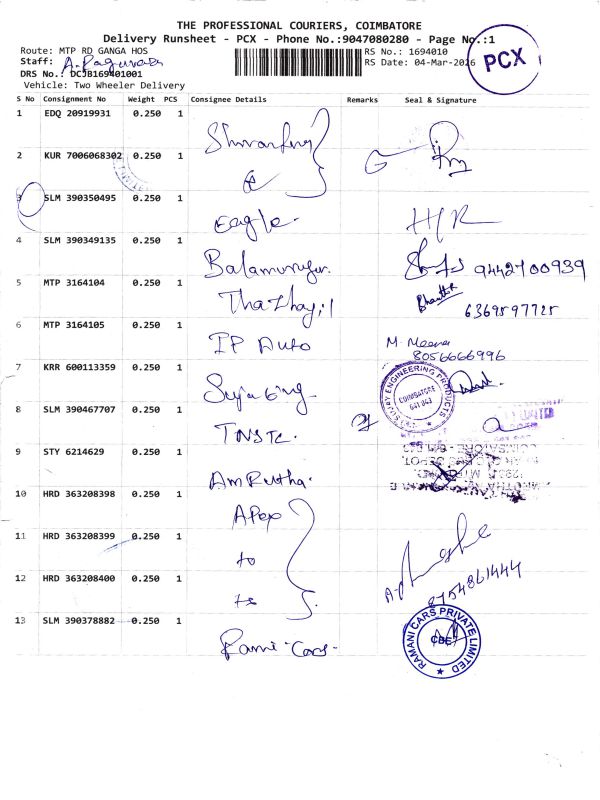 THE PROFESSIONAL COURIERS, COIMBATORE
Delivery Runsheet - PCX - Phone No.:9047080280 - Page No.:1
Route: MTP RD GANGA HOS
RS No.: 1694010
Staff: A. Raguvaran
RS Date: 04-Mar-2026
PCX
DRS No.: DCJB169401001
Vehicle: Two Wheeler Delivery
S No Consignment No Weight PCS Consignee Details Remarks Seal & Signature
1 EDQ 20919931 0.250 1
2 KUR 7006068302 0.250 1
3 SLM 390350495 0.250 1 Eagle.
4 SLM 390349135 0.250 1 Balamurugan. 9442700939
5 MTP 3164104 0.250 1 6369597725
6 MTP 3164105 0.250 1 IP Auto M. Meena
8056666996
7 KRR 600113359 0.250 1 SUJAY ENGINEERING PRODUCTS COIMBATORE 641 043
8 SLM 390467707 0.250 1 TNSTC.
9 STY 6214629 0.250 1 AmRutha.
10 HRD 363208398 0.250 1 Apex
11 HRD 363208399 0.250 1 to
12 HRD 363208400 0.250 1 8754861444
13 SLM 390378882 0.250 1 Ramani Cars. RAMANI CARS PRIVATE LIMITED CBE